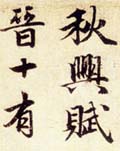 秋興賦
晉十有